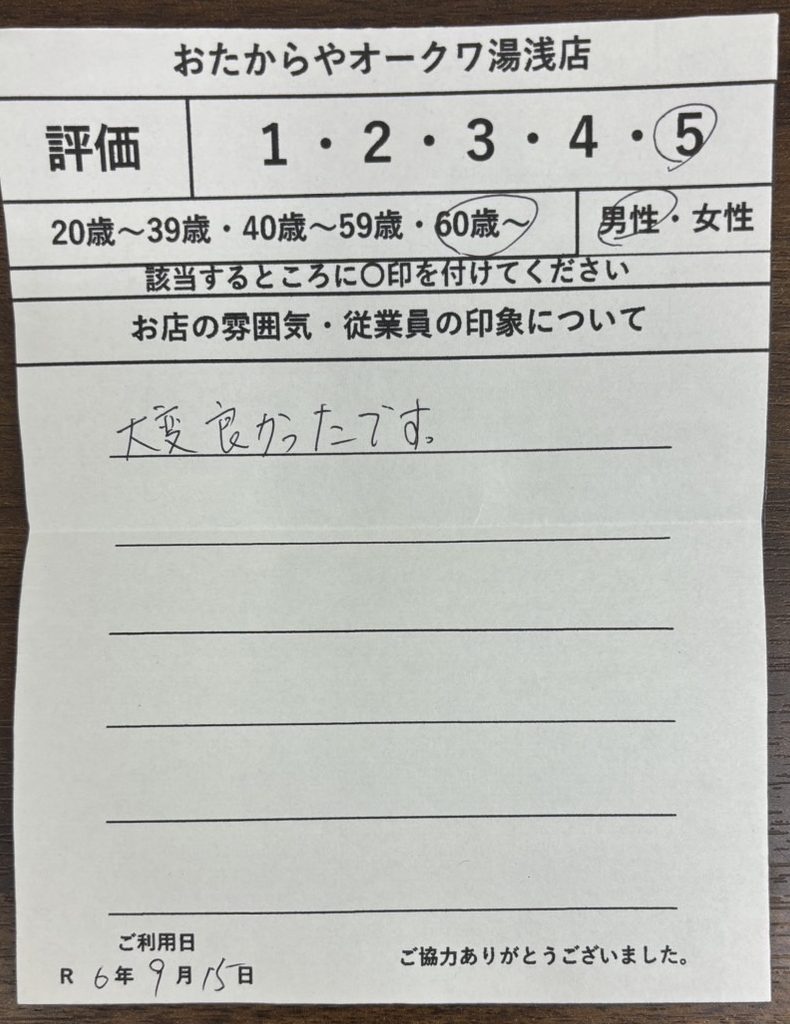 おたからやオークワ湯浅店
評価 1・2・3・4・5
20歳～39歳・40歳～59歳・60歳～ 男性・女性
該当するところに〇印を付けてください
お店の雰囲気・従業員の印象について
大変良かったです。
ご利用日
ご協力ありがとうございました。
R 6年9月15日